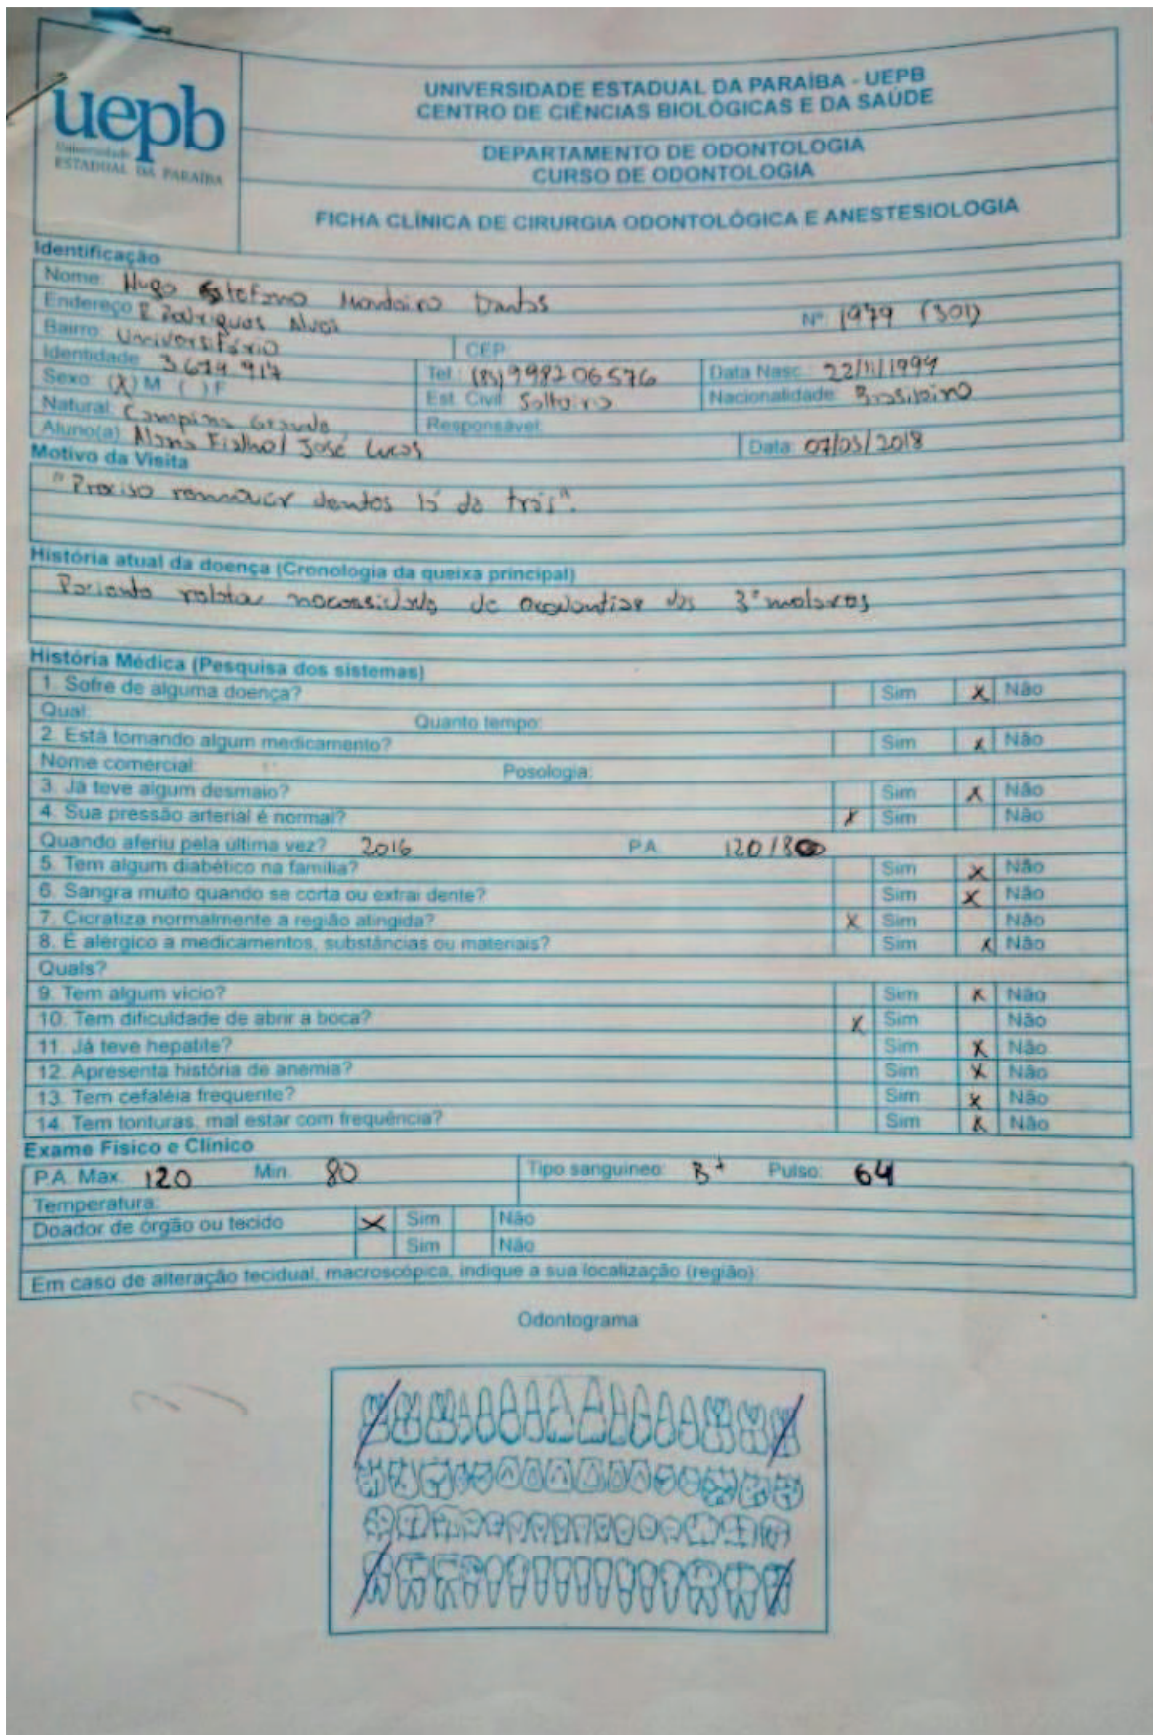 uepb
Universidade
ESTADUAL DA PARAÍBA
UNIVERSIDADE ESTADUAL DA PARAÍBA - UEPB
CENTRO DE CIÊNCIAS BIOLÓGICAS E DA SAÚDE
DEPARTAMENTO DE ODONTOLOGIA
CURSO DE ODONTOLOGIA
FICHA CLÍNICA DE CIRURGIA ODONTOLÓGICA E ANESTESIOLOGIA
Identificação
Nome: Hugo Estefano Monteiro Dantas
Endereço R Rodrigues Alves Nº 1979 (301)
Bairro: Universitário CEP:
Identidade 3674917 Tel.: 998206576 Data Nasc.: 22/11/1994
Sexo: (X) M ( ) F Est. Civil Solteiro Nacionalidade: Brasileiro
Natural: Campina Grande Responsável:
Aluno(a) Fialho / José Lucas Data: 07/05/2018
Motivo da Visita
"Preciso remover dentos lá de trás".
História atual da doença (Cronologia da queixa principal)
Paciente relata necessidade de exodontias dos 3º molares
História Médica (Pesquisa dos sistemas)
1. Sofre de alguma doença? Sim X Não
Qual: Quanto tempo:
2. Está tomando algum medicamento? Sim X Não
Nome comercial: Posologia:
3. Já teve algum desmaio? Sim X Não
4. Sua pressão arterial é normal? X Sim Não
Quando aferiu pela última vez? 2016 P.A. 120/80
5. Tem algum diabético na família? Sim X Não
6. Sangra muito quando se corta ou extrai dente? Sim X Não
7. Cicratiza normalmente a região atingida? X Sim Não
8. É alérgico a medicamentos, substâncias ou materiais? Sim X Não
Quals?
9. Tem algum vício? Sim X Não
10. Tem dificuldade de abrir a boca? X Sim Não
11. Já teve hepatite? Sim X Não
12. Apresenta história de anemia? Sim X Não
13. Tem cefaléia frequente? Sim X Não
14. Tem tonturas, mal estar com frequência? Sim X Não
Exame Físico e Clínico
P.A. Max. 120 Min. 80 Tipo sanguineo: B+ Pulso: 64
Temperatura:
Doador de órgão ou tecido X Sim Não
Sim Não
Em caso de alteração tecidual, macroscópica, indique a sua localização (região):
Odontograma